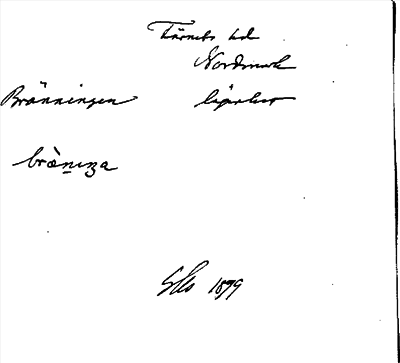 Färnebo hd
Nordmark
Bränningen lägenhet
bràn̲ɩŋa
1879